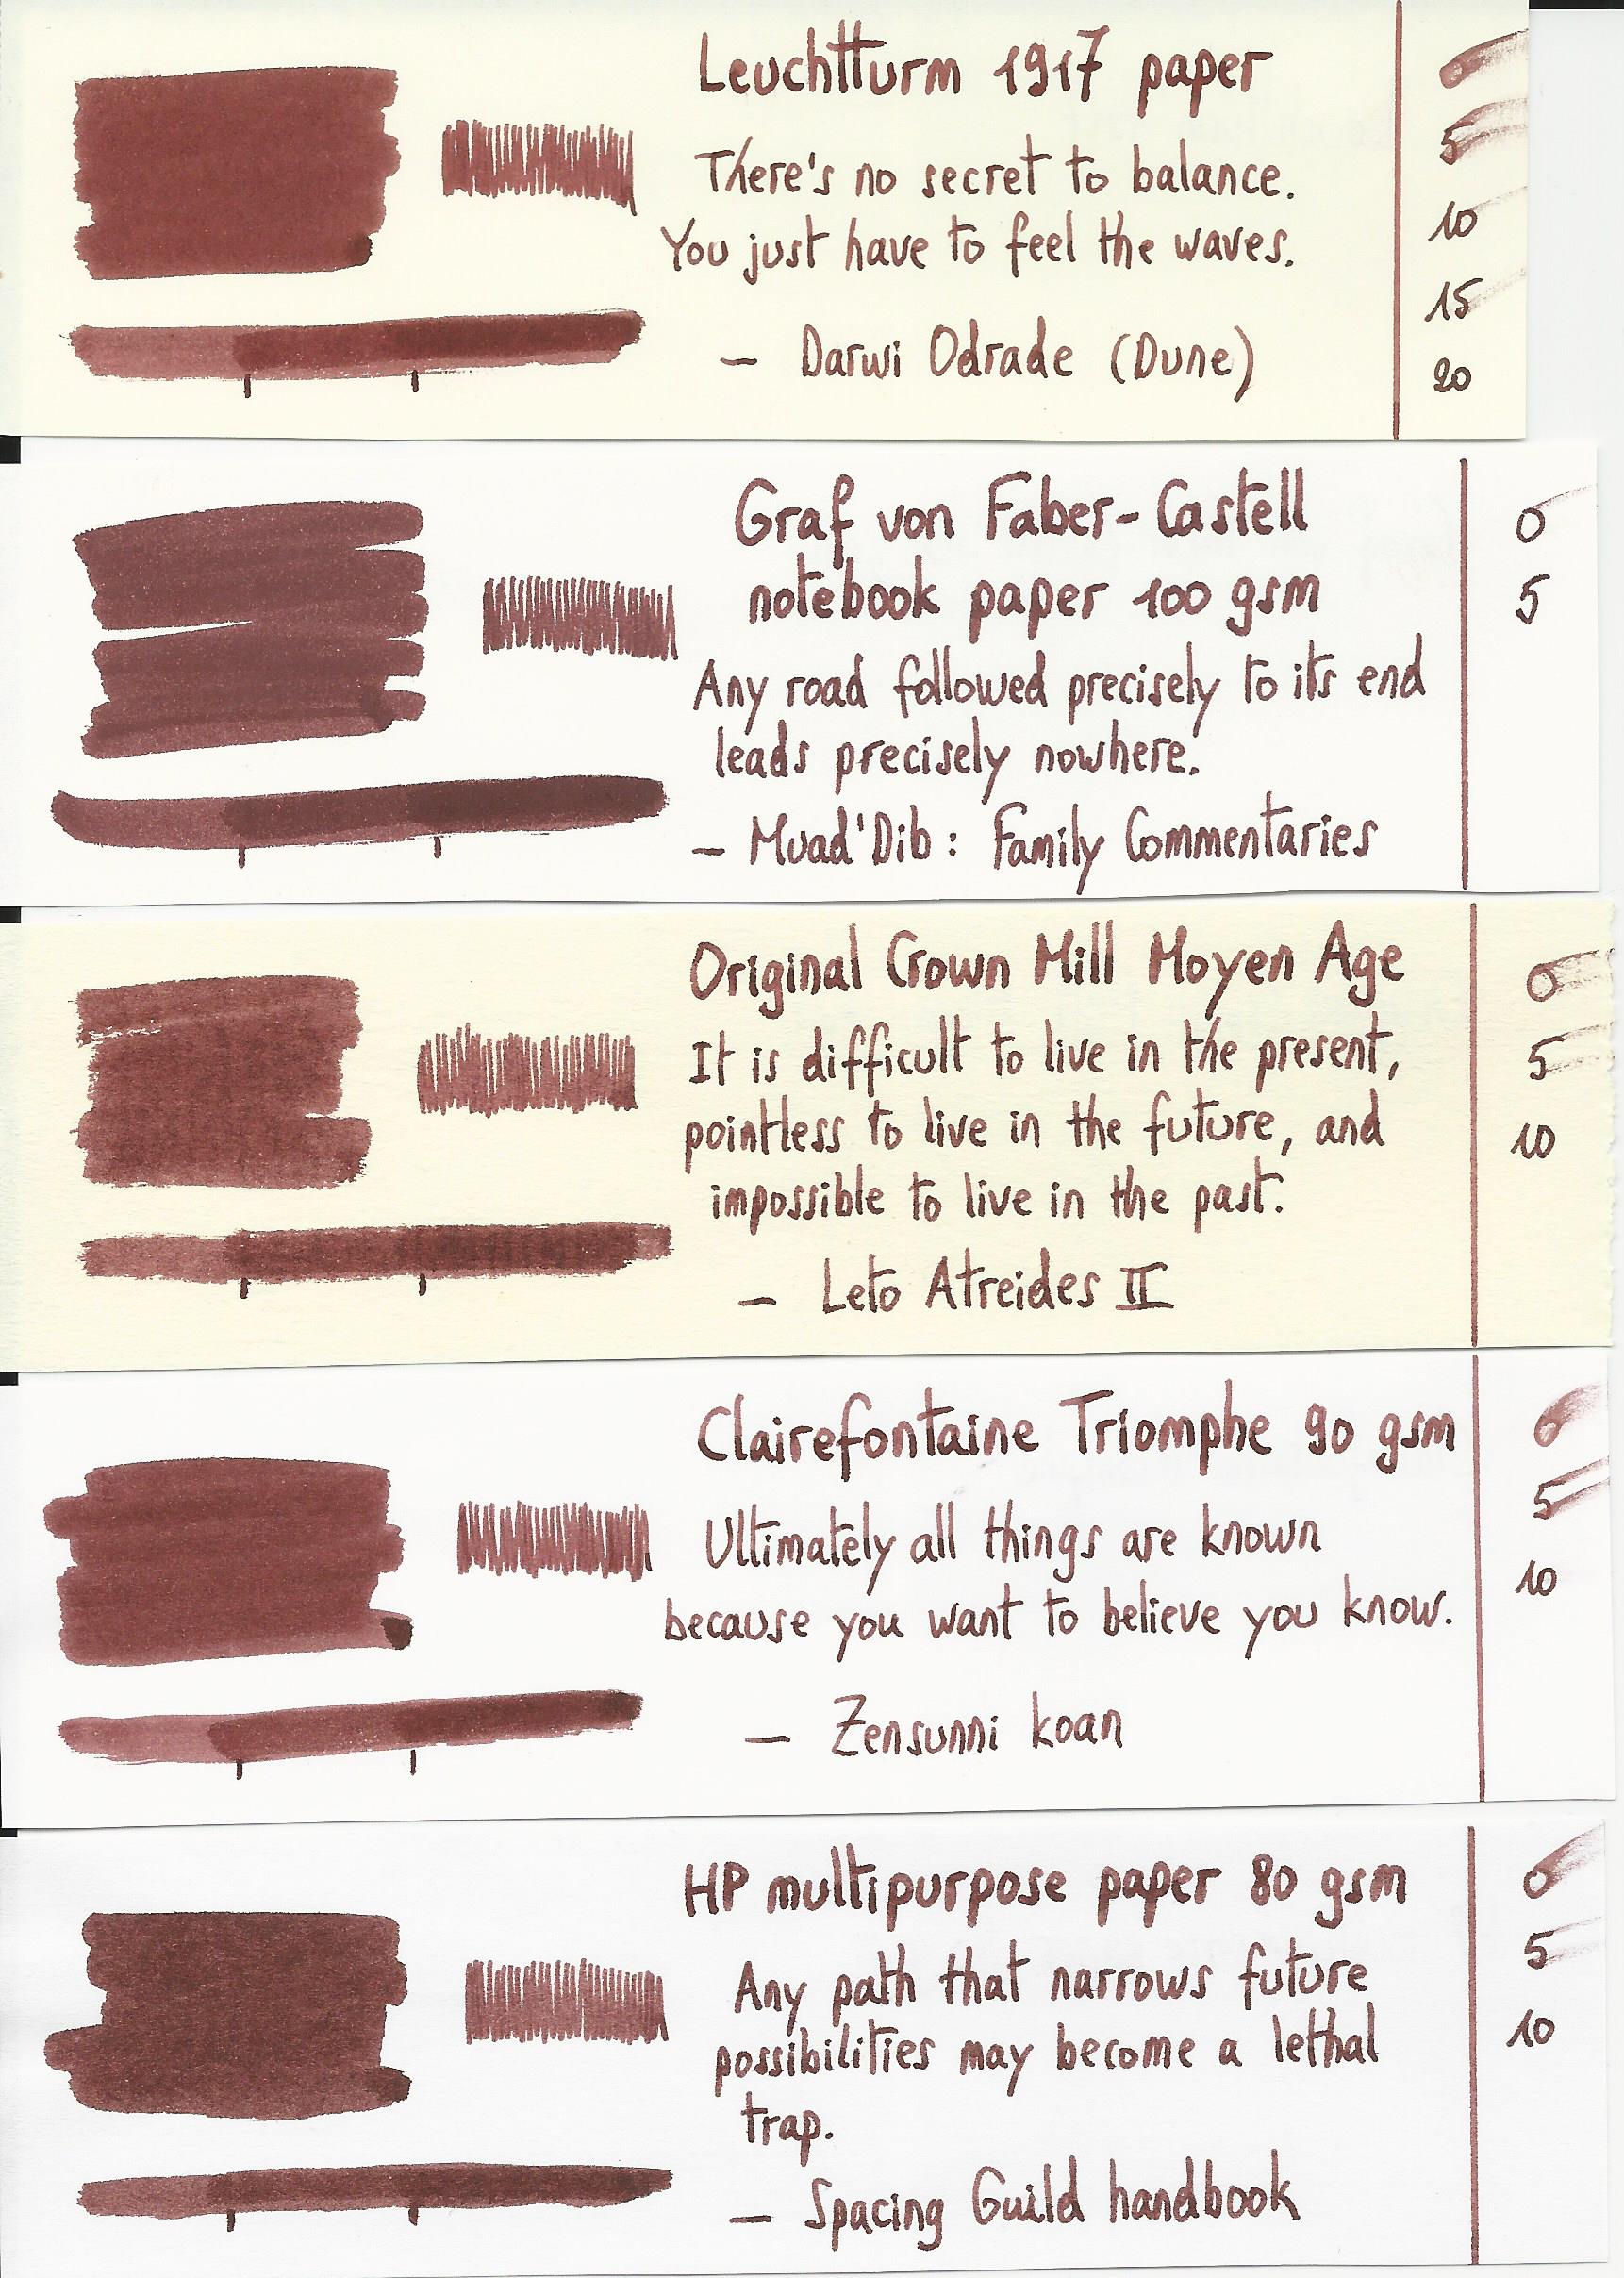 Leuchtturm 1917 paper
There's no secret to balance.
You just have to feel the waves.
— Darwi Odrade (Dune)
0
5
10
15
20
Graf von Faber-Castell
notebook paper 100 gsm
Any road followed precisely to its end
leads precisely nowhere.
— Muad'Dib: Family Commentaries
0
5
Original Crown Mill Moyen Age
It is difficult to live in the present,
pointless to live in the future, and
impossible to live in the past.
— Leto Atreides II
0
5
10
Clairefontaine Triomphe 90 gsm
Ultimately all things are known
because you want to believe you know.
— Zensunni koan
0
5
10
HP multipurpose paper 80 gsm
Any path that narrows future
possibilities may become a lethal
trap.
— Spacing Guild handbook
0
5
10